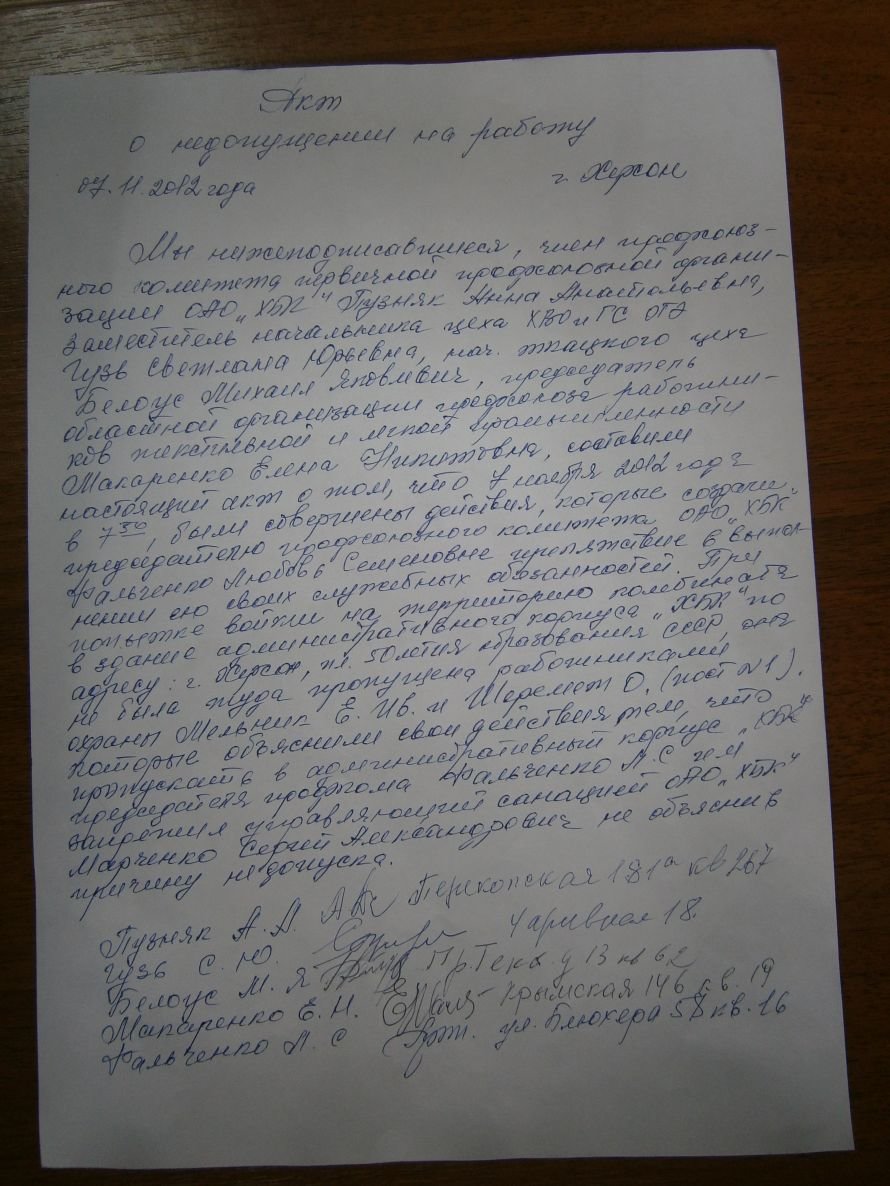 Акт
о недопущении на работу
07.11.2012 года г. Херсон
Мы нижеподписавшиеся, член профсоюз-
ного комитета первичной профсоюзной органи-
зации ОАО „ХБК“ Пузняк Анна Анатольевна,
заместитель начальника цеха ХВО и ГС ОГЭ
Гузь Светлана Юрьевна, нач. ткацкого цеха
Белоус Михаил Яковлевич, председатель
областной организации профсоюза работни-
ков текстильной и легкой промышленности
Макаренко Елена Никитовна, составили
настоящий акт о том, что 7 ноября 2012 года
в 7 30, были совершены действия, которые создали
председателю профсоюзного комитета ОАО „ХБК“
Фальченко Любовь Семеновне препятствие в выпол-
нении ею своих служебных обязанностей. При
попытке войти на территорию комбината
в здание административного корпуса „ХБК“ по
адресу: г. Херсон, пл. 50летия образования СССР, она
не была туда пропущена работниками
охраны Мельник Е. Ив. и Шеремет О. (пост №1).
которые объяснили свои действия тем, что
пропускать в административный корпус „ХБК“
председателя профкома Фальченко Л.С им
запретил управляющий санацией ОАО „ХБК“
Марченко Сергей Александрович не объяснив
причину недопуска.
Пузняк А. А. Перекопская 181а кв 267
Гузь С. Ю. Чаривная 18.
Белоус М. Я 13 кв 62
Макаренко Е. Н. Крымская 146 кв. 19
Фальченко Л. С ул. Блюхера 58 кв. 16